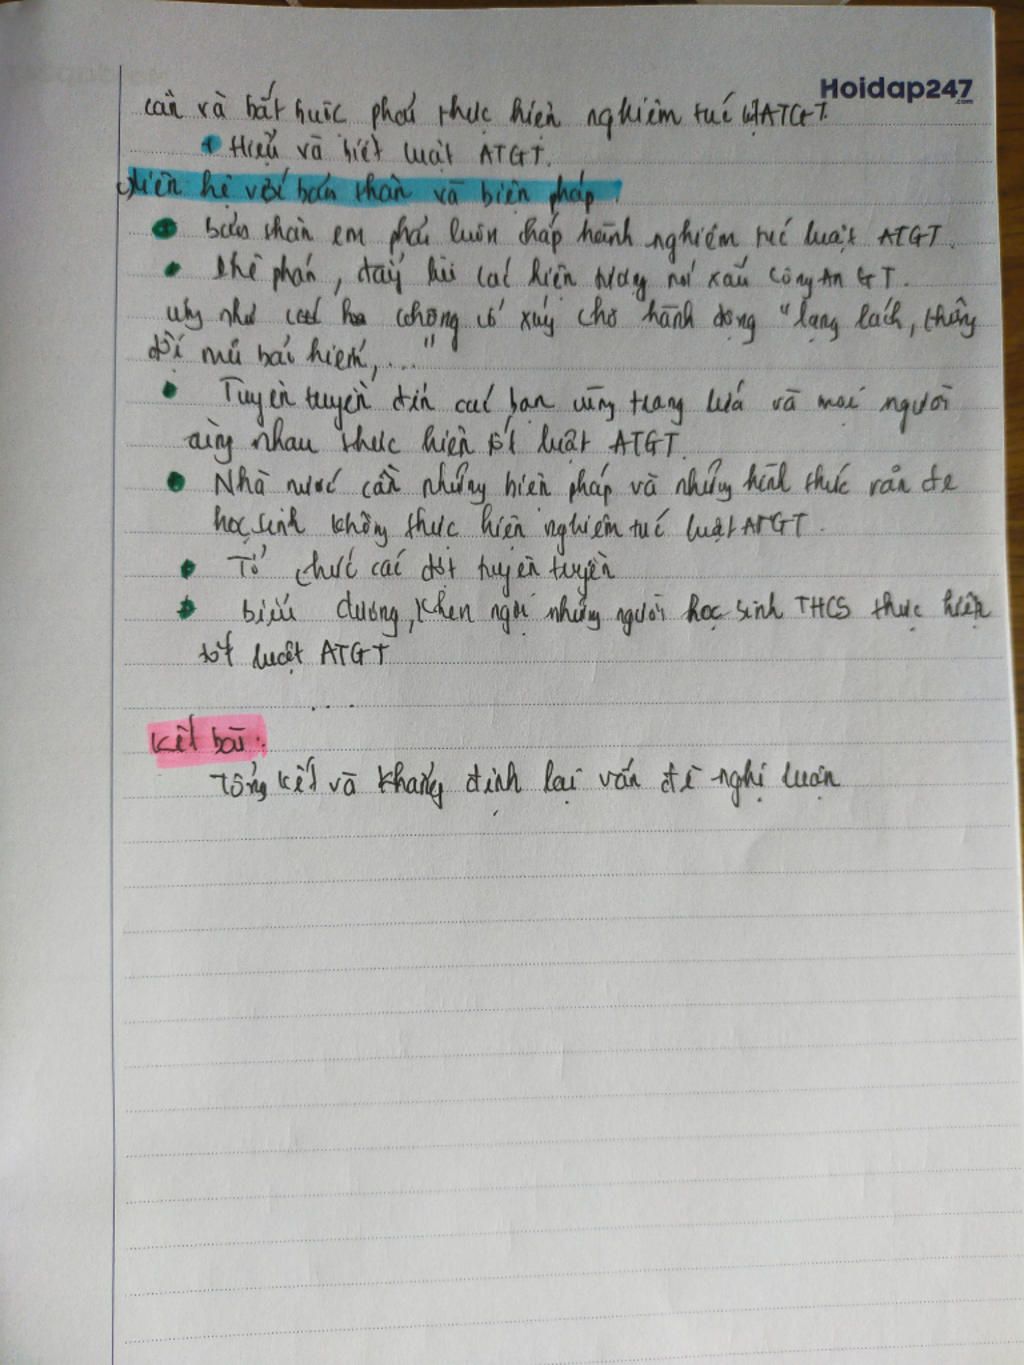 Hoidap247
.com
cần và bắt buộc phải thực hiện nghiêm túc luật ATGT.
+ Hiểu và biết luật ATGT.
c) Liên hệ với bản thân và biện pháp
bản thân em phải luôn chấp hành nghiêm túc luật ATGT.
phê phán, đẩy lùi các hiện tượng nói xấu Công An GT.
như không cổ xúy cho hành động "lạng lách, không
đội mũ bảo hiểm,..."
Tuyên truyền đến các bạn cùng trang lứa và mọi người
cùng nhau thực hiện tốt luật ATGT.
Nhà nước cần những biện pháp và những hình thức răn đe
học sinh không thực hiện nghiêm túc luật ATGT.
Tổ chức các đợt tuyên truyền
biểu dương, khen ngợi những người học sinh THCS thực hiện
tốt luật ATGT
...
Kết bài:
Tổng kết và khẳng định lại vấn đề nghị luận